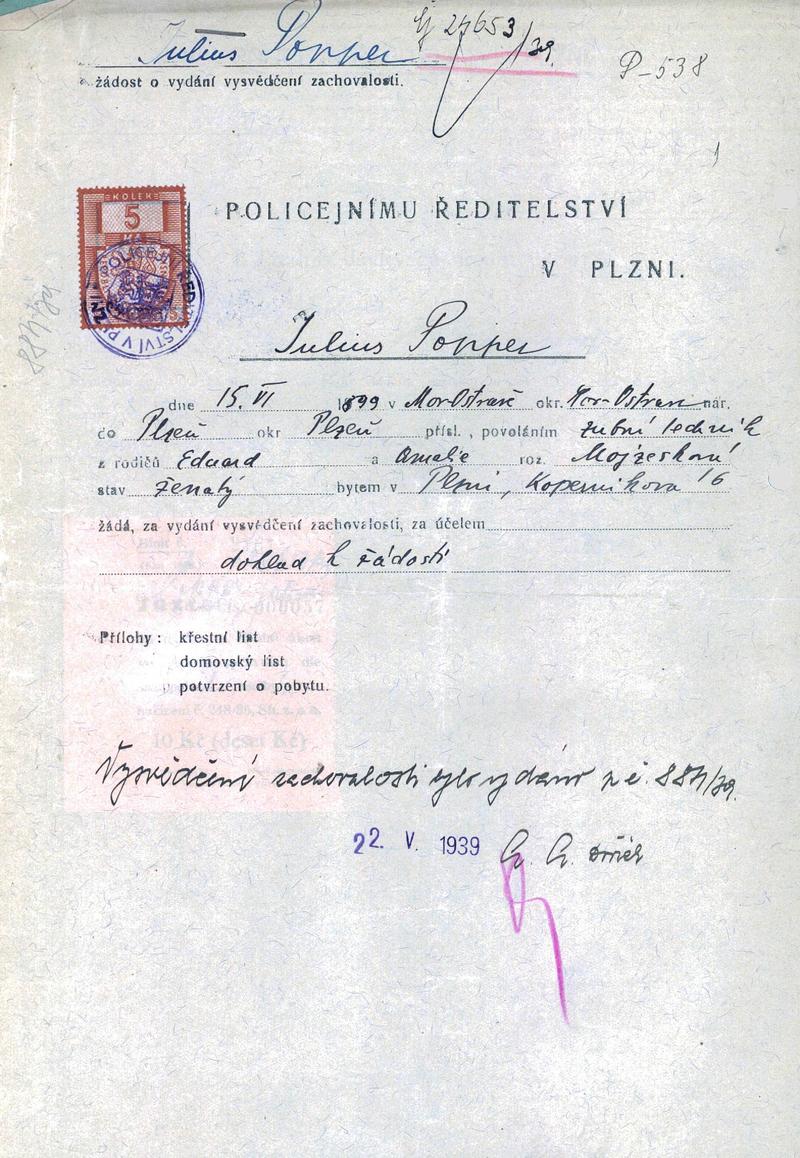 27653/39.
P-538
Iulius Popper
žádost o vydání vysvědčení zachovalosti.
KOLEK
5
POLICEJNÍ ŘEDITELSTVÍ V PLZNI
POLICEJNÍMU ŘEDITELSTVÍ
V PLZNI.
Iulius Popper
dne 15. VI 1899 v Mor Ostravě okr. Mor-Ostrava nar.
do Plzeň okr Plzeň přísl., povoláním zubní technik
z rodičů Eduard a Amalie roz. Mojžeskové
stav ženatý bytem v Plzni, Koperníkova 16
žádá, za vydání vysvědčení zachovalosti, za účelem
doklad k žádosti
Přílohy: křestní list
domovský list
potvrzení o pobytu.
nařízení č. 248-35, Sb. z. a n.
10 Kč (deset Kč)
Vysvědčení zachovalosti bylo vydáno p č. 884/39.
22. V. 1939